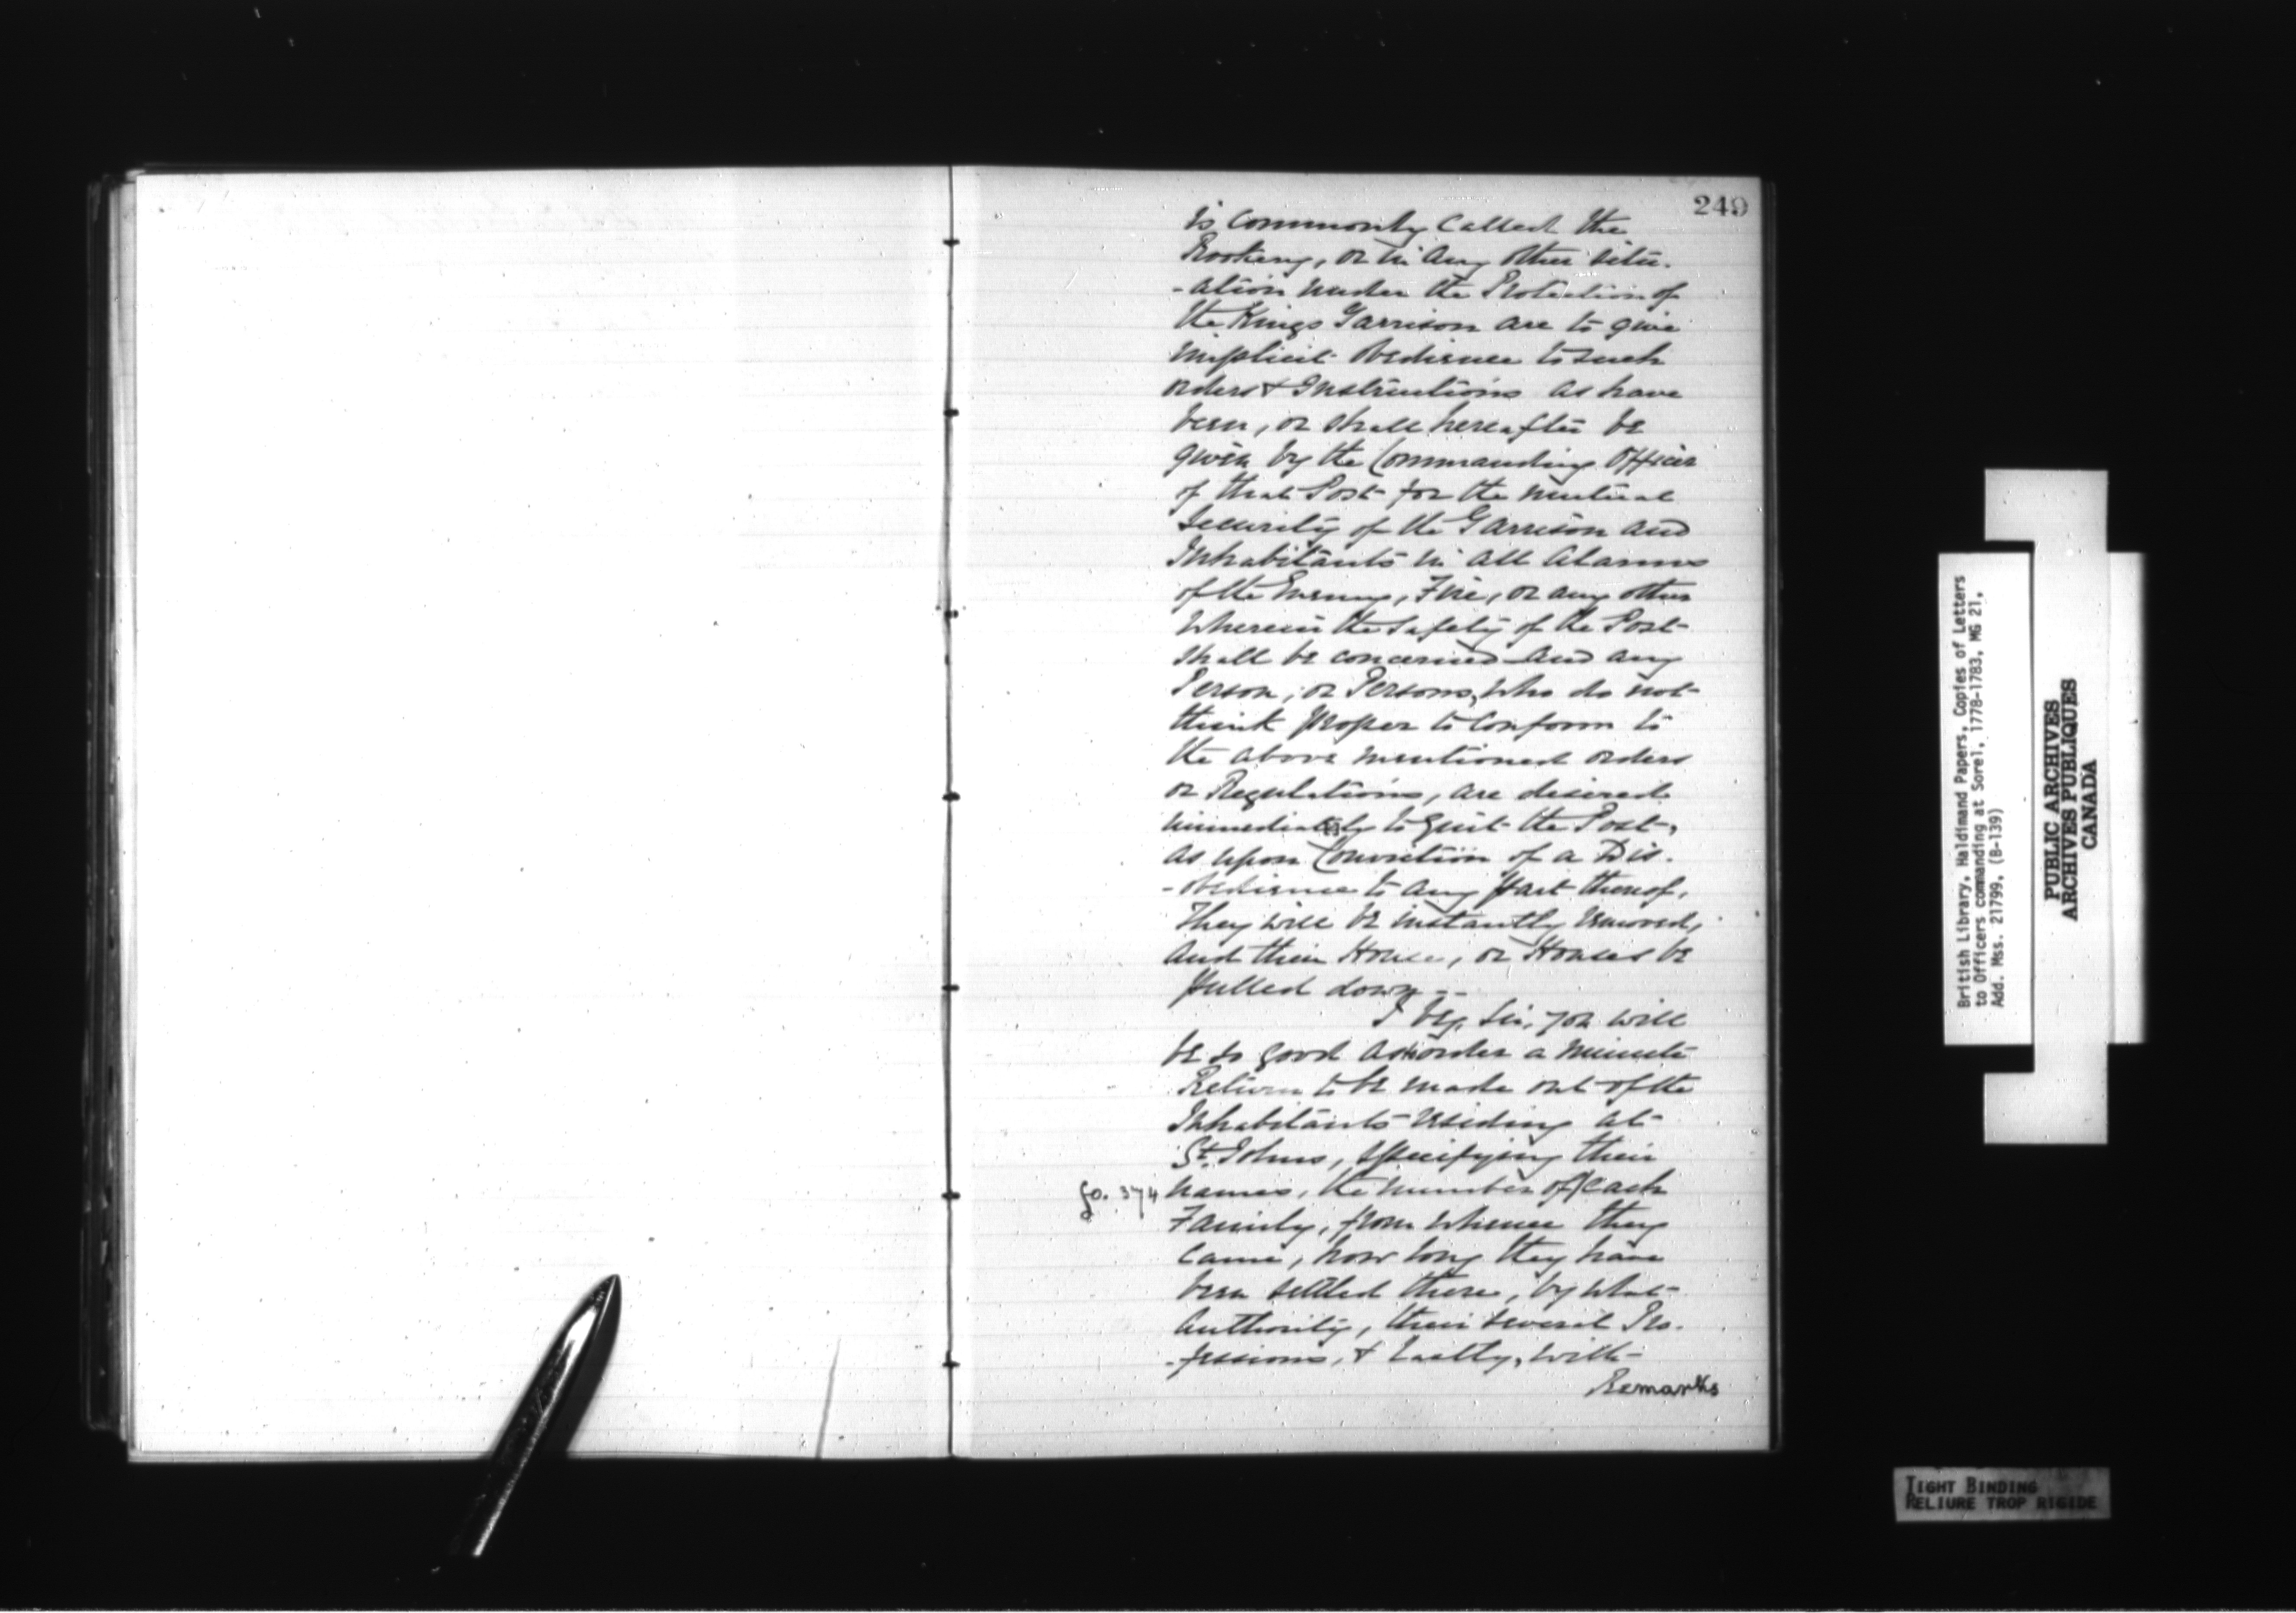 249
is commonly called the
Rookery, or in any other situ-
-ation under the Protection of
the Kings Garrison are to give
implicit Obedience to such
orders & Instructions as have
been, or shall hereafter be
given by the Commanding Officer
of that Post for the mutual
Security of the Garrison and
Inhabitants in all Alarms
of the Enemy, Fire, or any other
wherein the Safety of the Post
shall be concerned and any
Person, or Persons, who do not
think proper to Conform to
the above mentioned orders
or Regulations, are desired
immediately to quit the Post,
as upon Conviction of a Dis-
-obedience to any part thereof,
They will be instantly removed,
and their House, or Houses be
pulled down --
I beg, Sir, you will
be so good as to order a minute
Return to be made out of the
Inhabitants residing at
St. Johns, specifying their
fo. 374
names, the number of/each
Family, from whence they
came, how long they have
been settled there, by what
Authority, their several Pro-
-fessions, & lastly, with
Remarks
British Library, Haldimand Papers, Copies of Letters
to Officers commanding at Sorel, 1778-1783, MG 21,
Add. Mss. 21799, (B-139)
PUBLIC ARCHIVES
ARCHIVES PUBLIQUES
CANADA
TIGHT BINDING
RELIURE TROP RIGIDE